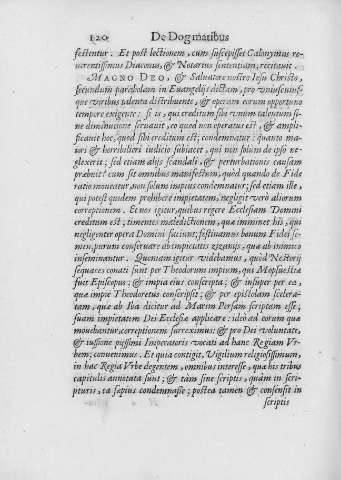 120 De Dogmatibus
festentur. Et post lectionem, cum suscepisset Calonymus re-
uerentissimus Diaconus, & Notarius sententiam, recitauit.
MAGNO DEO, & Saluatore nostro Iesu Christo,
secundum parabolam in Euangelijs dictam, pro vniuscuius-
que viribus talenta distribuente, & operam eorum oportuno
tempore exigente; si is, qui creditum sibi vnum talentum si-
ne diminutione seruauit, eo quod non operatus est, & ampli-
ficauit hoc, quod sibi creditum est; condemnatur: quanto ma-
iori & horribiliori iudicio subiacet, qui non solum de ipso ne-
glexerit; sed etiam alijs scandali, & perturbationis causam
præbuit? cum sit omnibus manifestum, quòd quando de Fide
ratio moueatur, non solum impius condemnatur; sed etiam ille,
qui potest quidem prohibere impietatem, negligit verò aliorum
correptionem. Et nos igitur, quibus regere Ecclesiam Domini
creditum est; timentes maledictionem, quæ imminet his, qui
negligenter opera Domini faciunt; festinamus bonum Fidei se-
men, purum conseruare ab impietatis zizanijs, quæ ab inimico
inseminantur. Quoniam igitur videbamus, quòd Nestorij
sequaces conati sunt per Theodorum impium, qui Mopsuestiæ
fuit Episcopus; & impia eius conscripta; & insuper per ea,
quæ impiè Theodoretus conscripsit; & per epistolam scelera-
tam, quæ ab Iba dicitur ad Marem Persam scriptam esse;
suam impietatem Dei Ecclesiæ applicare: ideò ad eorum quæ
mouebantur, correptionem surreximus; & pro Dei voluntate,
& iussione pijssimi Imperatoris vocati ad hanc Regiam Vr-
bem; conuenimus. Et quia contigit, Vigilium religiosissimum,
in hac Regia Vrbe degentem, omnibus interesse, quæ his tribus
capitulis annotata sunt; & tam sine scriptis, quàm in scri-
pturis, ea sæpius condemnasse; postea tamen & consensit in
scriptis